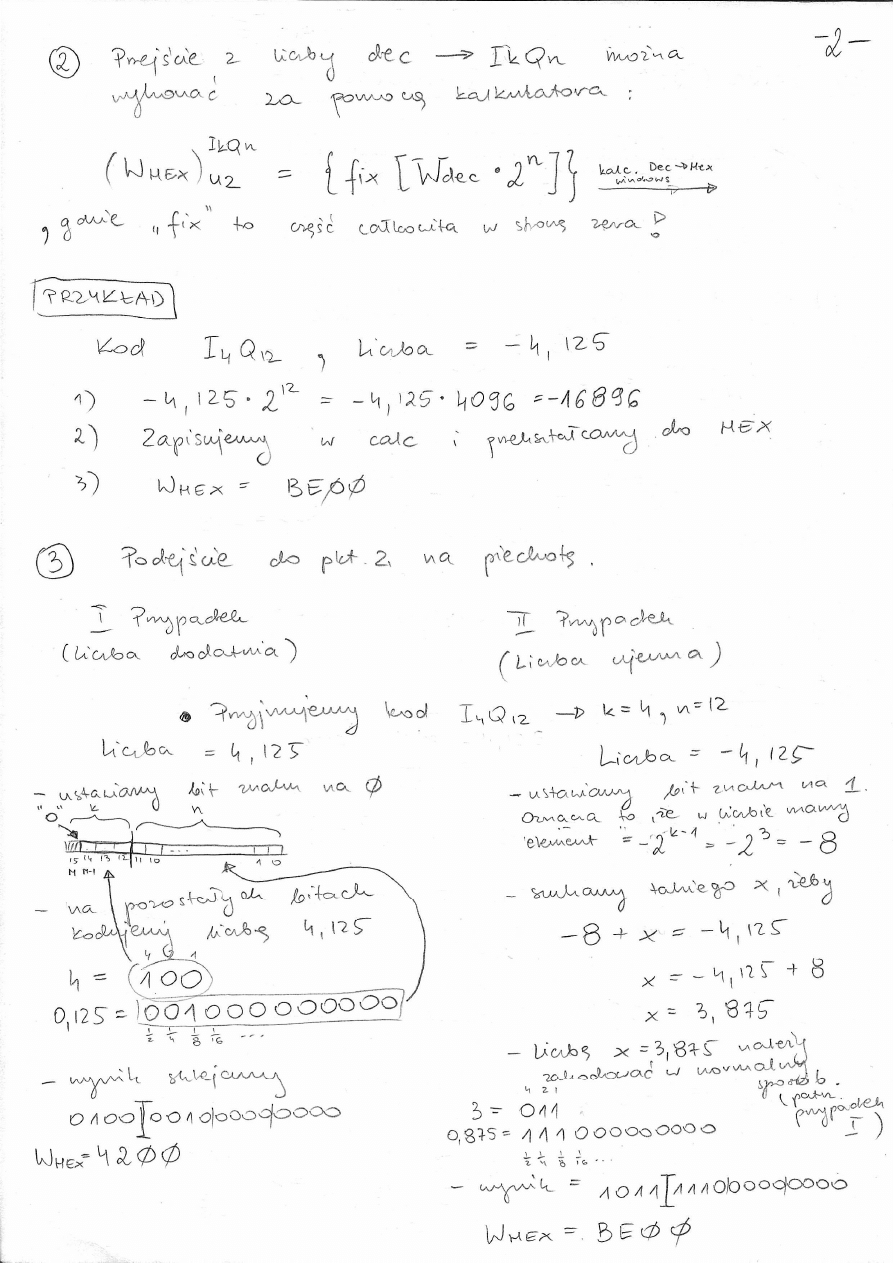 -2-
② Przejście z liczby dec → IkQn można
wykonać za pomocą kalkulatora :
(WHEX)U2 IkQn = { fix [Wdec · 2^n]} kalc. Dec→Hex windows
, gdzie „fix" to część całkowita w stronę zera !
PRZYKŁAD
Kod I4Q12 , Liczba = -4,125
1) -4,125 · 2^12 = -4,125 · 4096 = -16896
2) Zapisujemy w calc i przekształcamy do HEX
3) WHEX = BEØØ
③ Podejście do pkt. 2. na piechotę.
I Przypadek
(Liczba dodatnia)
II Przypadek
(Liczba ujemna)
• Przyjmujemy kod I4Q12 → k=4, n=12
Liczba = 4,125
- ustawiamy bit znaku na Ø
"0" k n
15 14 13 12 11 10 ... 1 0
M M-1
- na pozostałych bitach
kodujemy liczbę 4,125
4 2 1
4 = 100
0,125 = 001000000000
1/2 1/4 1/8 1/16 ...
- wynik sklejamy
0100|001000000000
WHEX = 42ØØ
Liczba = -4,125
- ustawiamy bit znaku na 1.
Oznacza to, że w liczbie mamy
element = -2^k-1 = -2^3 = -8
- szukamy takiego x, żeby
-8 + x = -4,125
x = -4,125 + 8
x = 3,875
- Liczbę x = 3,875 należy
zakodować w normalny
sposób.
(patrz
przypadek
I)
4 2 1
3 = 011
0,875 = 111000000000
1/2 1/4 1/8 1/16 ...
- wynik = 1011|111000000000
WHEX = BEØØ